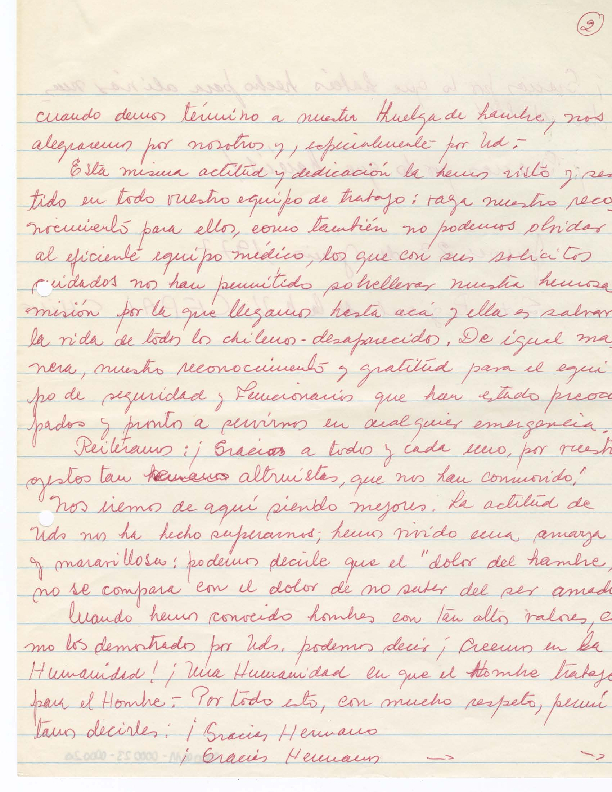 2
cuando demos término a nuestra Huelga de hambre, nos
alegraremos por nosotros y, especialmente por Ud.-
Esta misma actitud y dedicación la hemos visto y sen
tido en todo vuestro equipo de trabajo: vaya nuestro reco
nocimiento para ellos, como también no podemos olvidar
al eficiente equipo médico, los que con sus solícitos
cuidados nos han permitido sobrellevar nuestra hermosa
misión por la que llegamos hasta acá y ella es salvar
la vida de todos los chilenos-desaparecidos. De igual ma
nera, nuestro reconocimiento y gratitud para el equi
po de seguridad y Funcionarios que han estado preocu
pados y prontos a servirnos en cualquier emergencia.-
Reiteramos: ¡Gracias a todos y cada uno, por vuestr
gestos tan altruistas, que nos han conmovido!
Nos iremos de aquí siendo mejores. La actitud de
Uds nos ha hecho superarnos; hemos vivido una amarga
y maravillosa: podemos decirle que el "dolor del hambre,
no se compara con el dolor de no saber del ser amad
Cuando hemos conocido hombres con tan altos valores, c
mo los demostrados por Uds. podemos decir ¡Creemos en la
Humanidad! ¡Una Humanidad en que el Hombre trabaje
para el Hombre.- Por todo esto, con mucho respeto, permi
tanos decirles: ¡Gracias Hermano
¡Gracias Hermanos → →